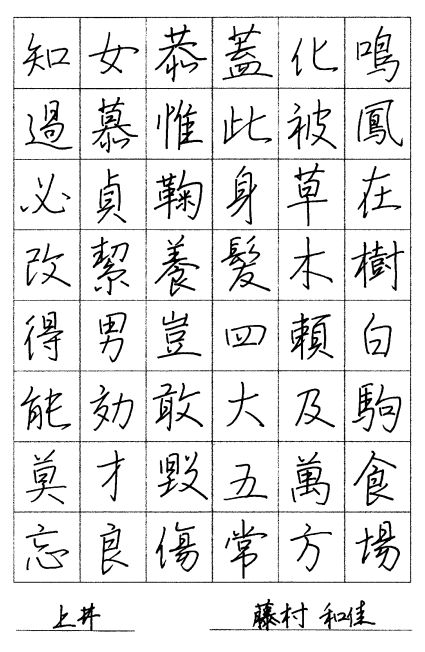 鳴鳳在樹白駒食場
化被草木頼及萬方
蓋此身髮四大五常
恭惟鞠養豈敢毀傷
女慕貞絜男効才良
知過必改得能莫忘
上井
藤村 和佳